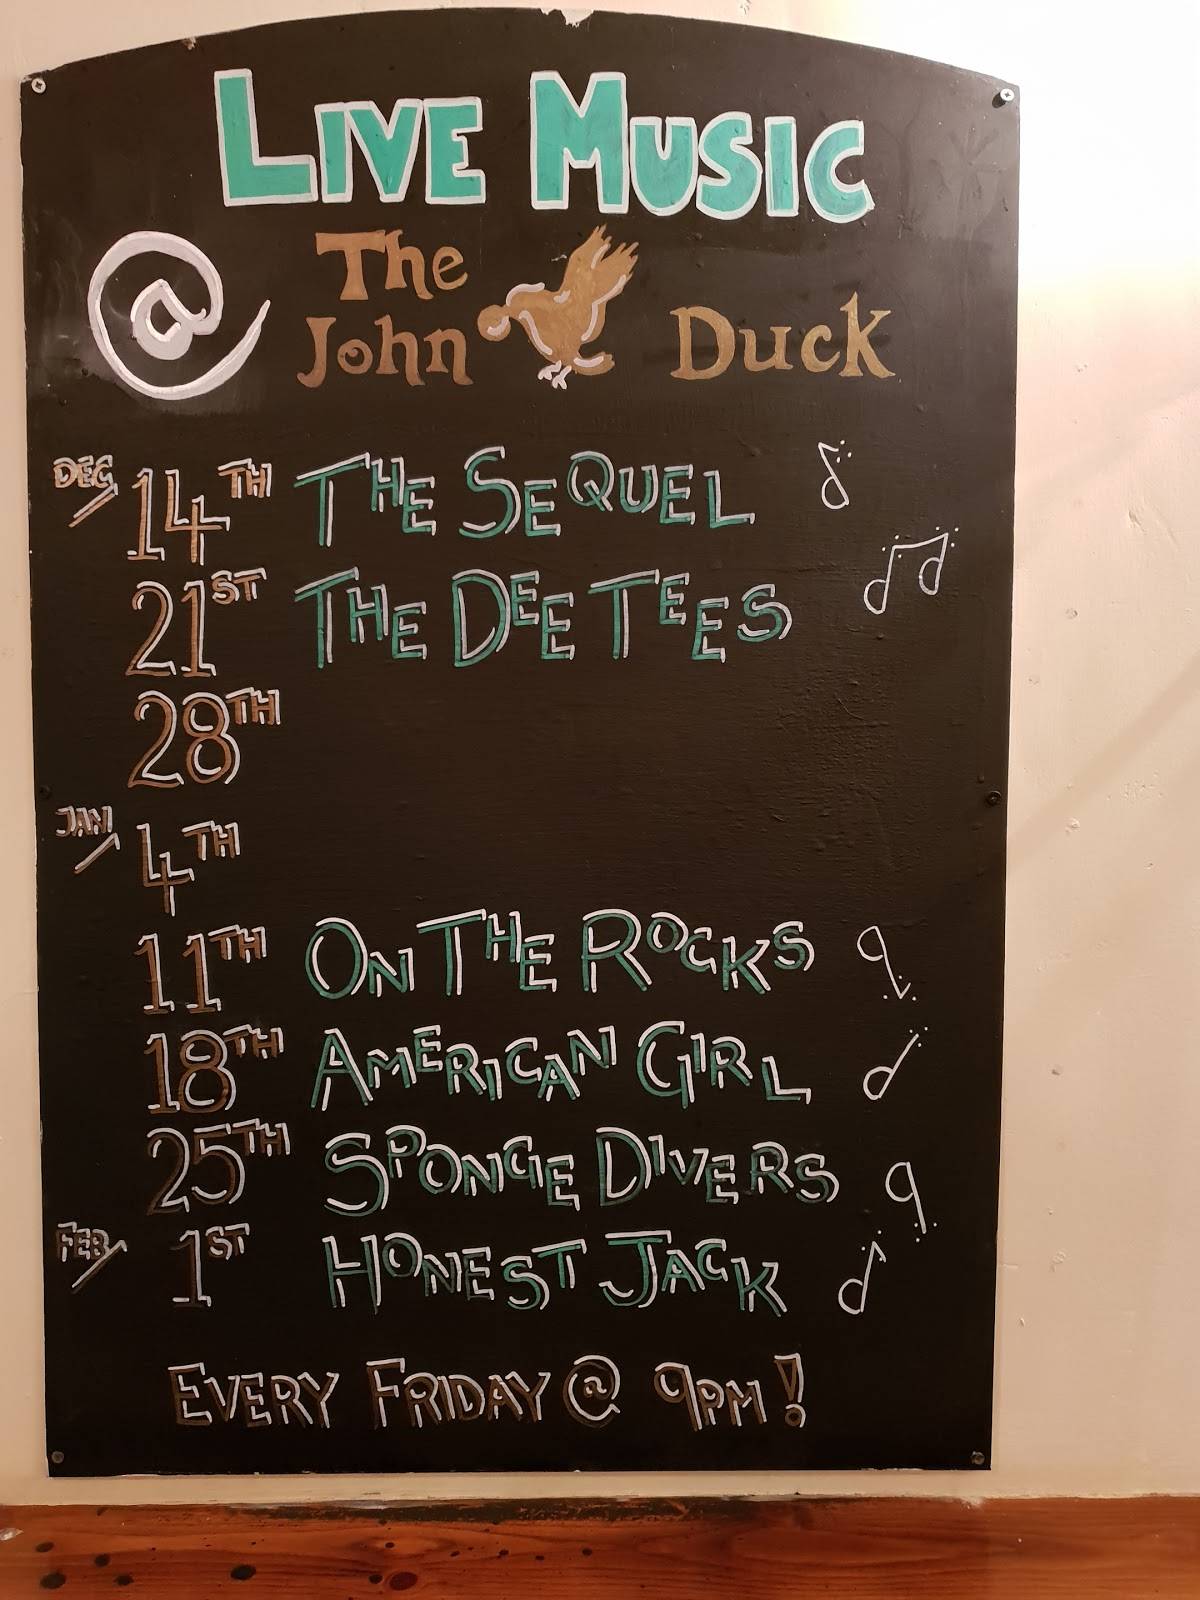 LIVE MUSIC
@ The John Duck
DEC 14TH THE SEQUEL
21ST THE DEE TEES
28TH
JAN 4TH
11TH ON THE ROCKS
18TH AMERICAN GIRL
25TH SPONGE DIVERS
FEB 1ST HONEST JACK
EVERY FRIDAY @ 9PM!